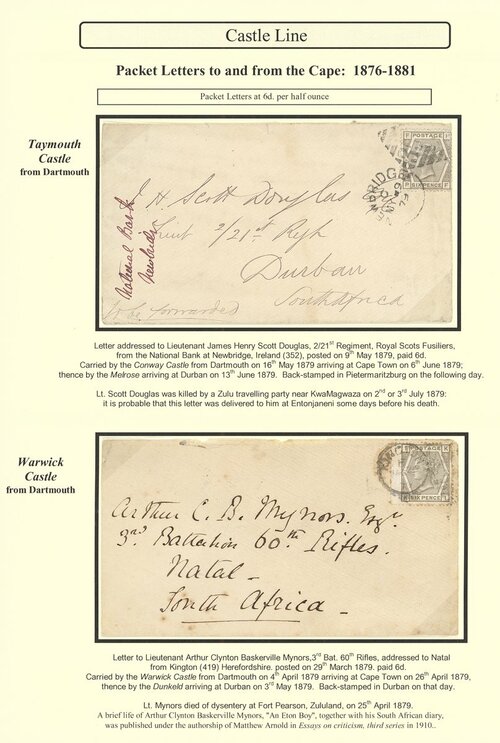 Castle Line
Packet Letters to and from the Cape: 1876-1881
Packet Letters at 6d. per half ounce
Taymouth
Castle
from Dartmouth
POSTAGE
SIX PENCE
J. H. Scott Douglas
Lieut 2/21st Regt
Durban
South Africa
To be forwarded
National Bank
Newbridge
Letter addressed to Lieutenant James Henry Scott Douglas, 2/21st Regiment, Royal Scots Fusiliers,
from the National Bank at Newbridge, Ireland (352), posted on 9th May 1879, paid 6d.
Carried by the Conway Castle from Dartmouth on 16th May 1879 arriving at Cape Town on 6th June 1879;
thence by the Melrose arriving at Durban on 13th June 1879. Back-stamped in Pietermaritzburg on the following day.
Lt. Scott Douglas was killed by a Zulu travelling party near KwaMagwaza on 2nd or 3rd July 1879:
it is probable that this letter was delivered to him at Entonjaneni some days before his death.
Warwick
Castle
from Dartmouth
POSTAGE
SIX PENCE
Arthur C. B. Mynors. Esqr.
3rd Battalion 60th Rifles.
Natal -
South Africa -
Letter to Lieutenant Arthur Clynton Baskerville Mynors,3rd Bat. 60th Rifles, addressed to Natal
from Kington (419) Herefordshire. posted on 29th March 1879. paid 6d.
Carried by the Warwick Castle from Dartmouth on 4th April 1879 arriving at Cape Town on 26th April 1879,
thence by the Dunkeld arriving at Durban on 3rd May 1879. Back-stamped in Durban on that day.
Lt. Mynors died of dysentery at Fort Pearson, Zululand, on 25th April 1879.
A brief life of Arthur Clynton Baskerville Mynors, "An Eton Boy", together with his South African diary,
was published under the authorship of Matthew Arnold in Essays on criticism, third series in 1910..